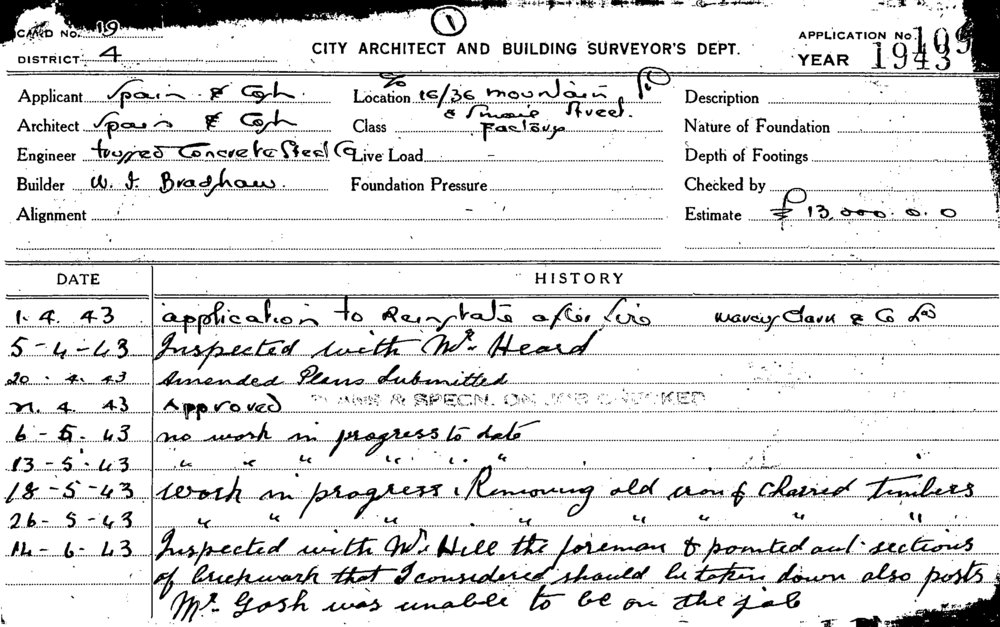 1
CARD No. 19
DISTRICT 4
CITY ARCHITECT AND BUILDING SURVEYOR'S DEPT.
APPLICATION No 109
YEAR 1943
Applicant Spain & Cosh.
Location 16/36 mountain St
& Smail Street.
Description
Architect Spain & Cosh
Class Factory
Nature of Foundation
Engineer Concrete Steel Co
Live Load -
Depth of Footings
Builder W. J. Bradshaw.
Foundation Pressure
Checked by
Alignment
Estimate £ 13,000.0.0
DATE HISTORY
1. 4. 43 application to Reinstate after fire Marcus Clark & Co Ld
5-4-43 Inspected with Mr. Heard
20. 4. 43 Amended Plans Submitted
21. 4. 43 Approved PLANS & SPECN. ON JOB CHECKED
6-5-43 no work in progress to date
13-5-43 " " " " " "
18-5-43 Work in progress, Removing old iron & charred timbers
26-5-43 " " " " " " " "
14-6-43 Inspected with Mr Hill the foreman & pointed out sections
of brickwork that I considered should be taken down also posts
Mr. Gosh was unable to be on the job